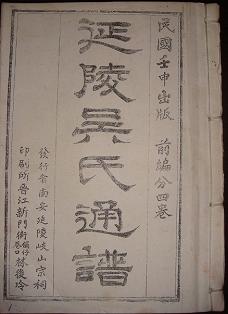 民國壬申出版 前編分四卷
延陵吳氏通譜
發行會南安延陵岐山宗祠
印刷所晉江新門街
林俊玲